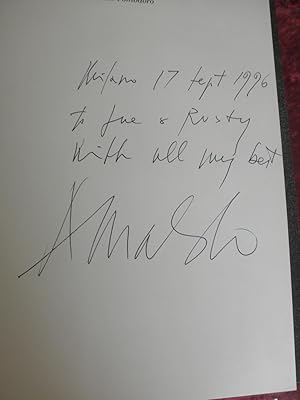 Pomodoro
Milano 17 Sept 1996
to Sue & Rusty
With all my best
Arnaldo